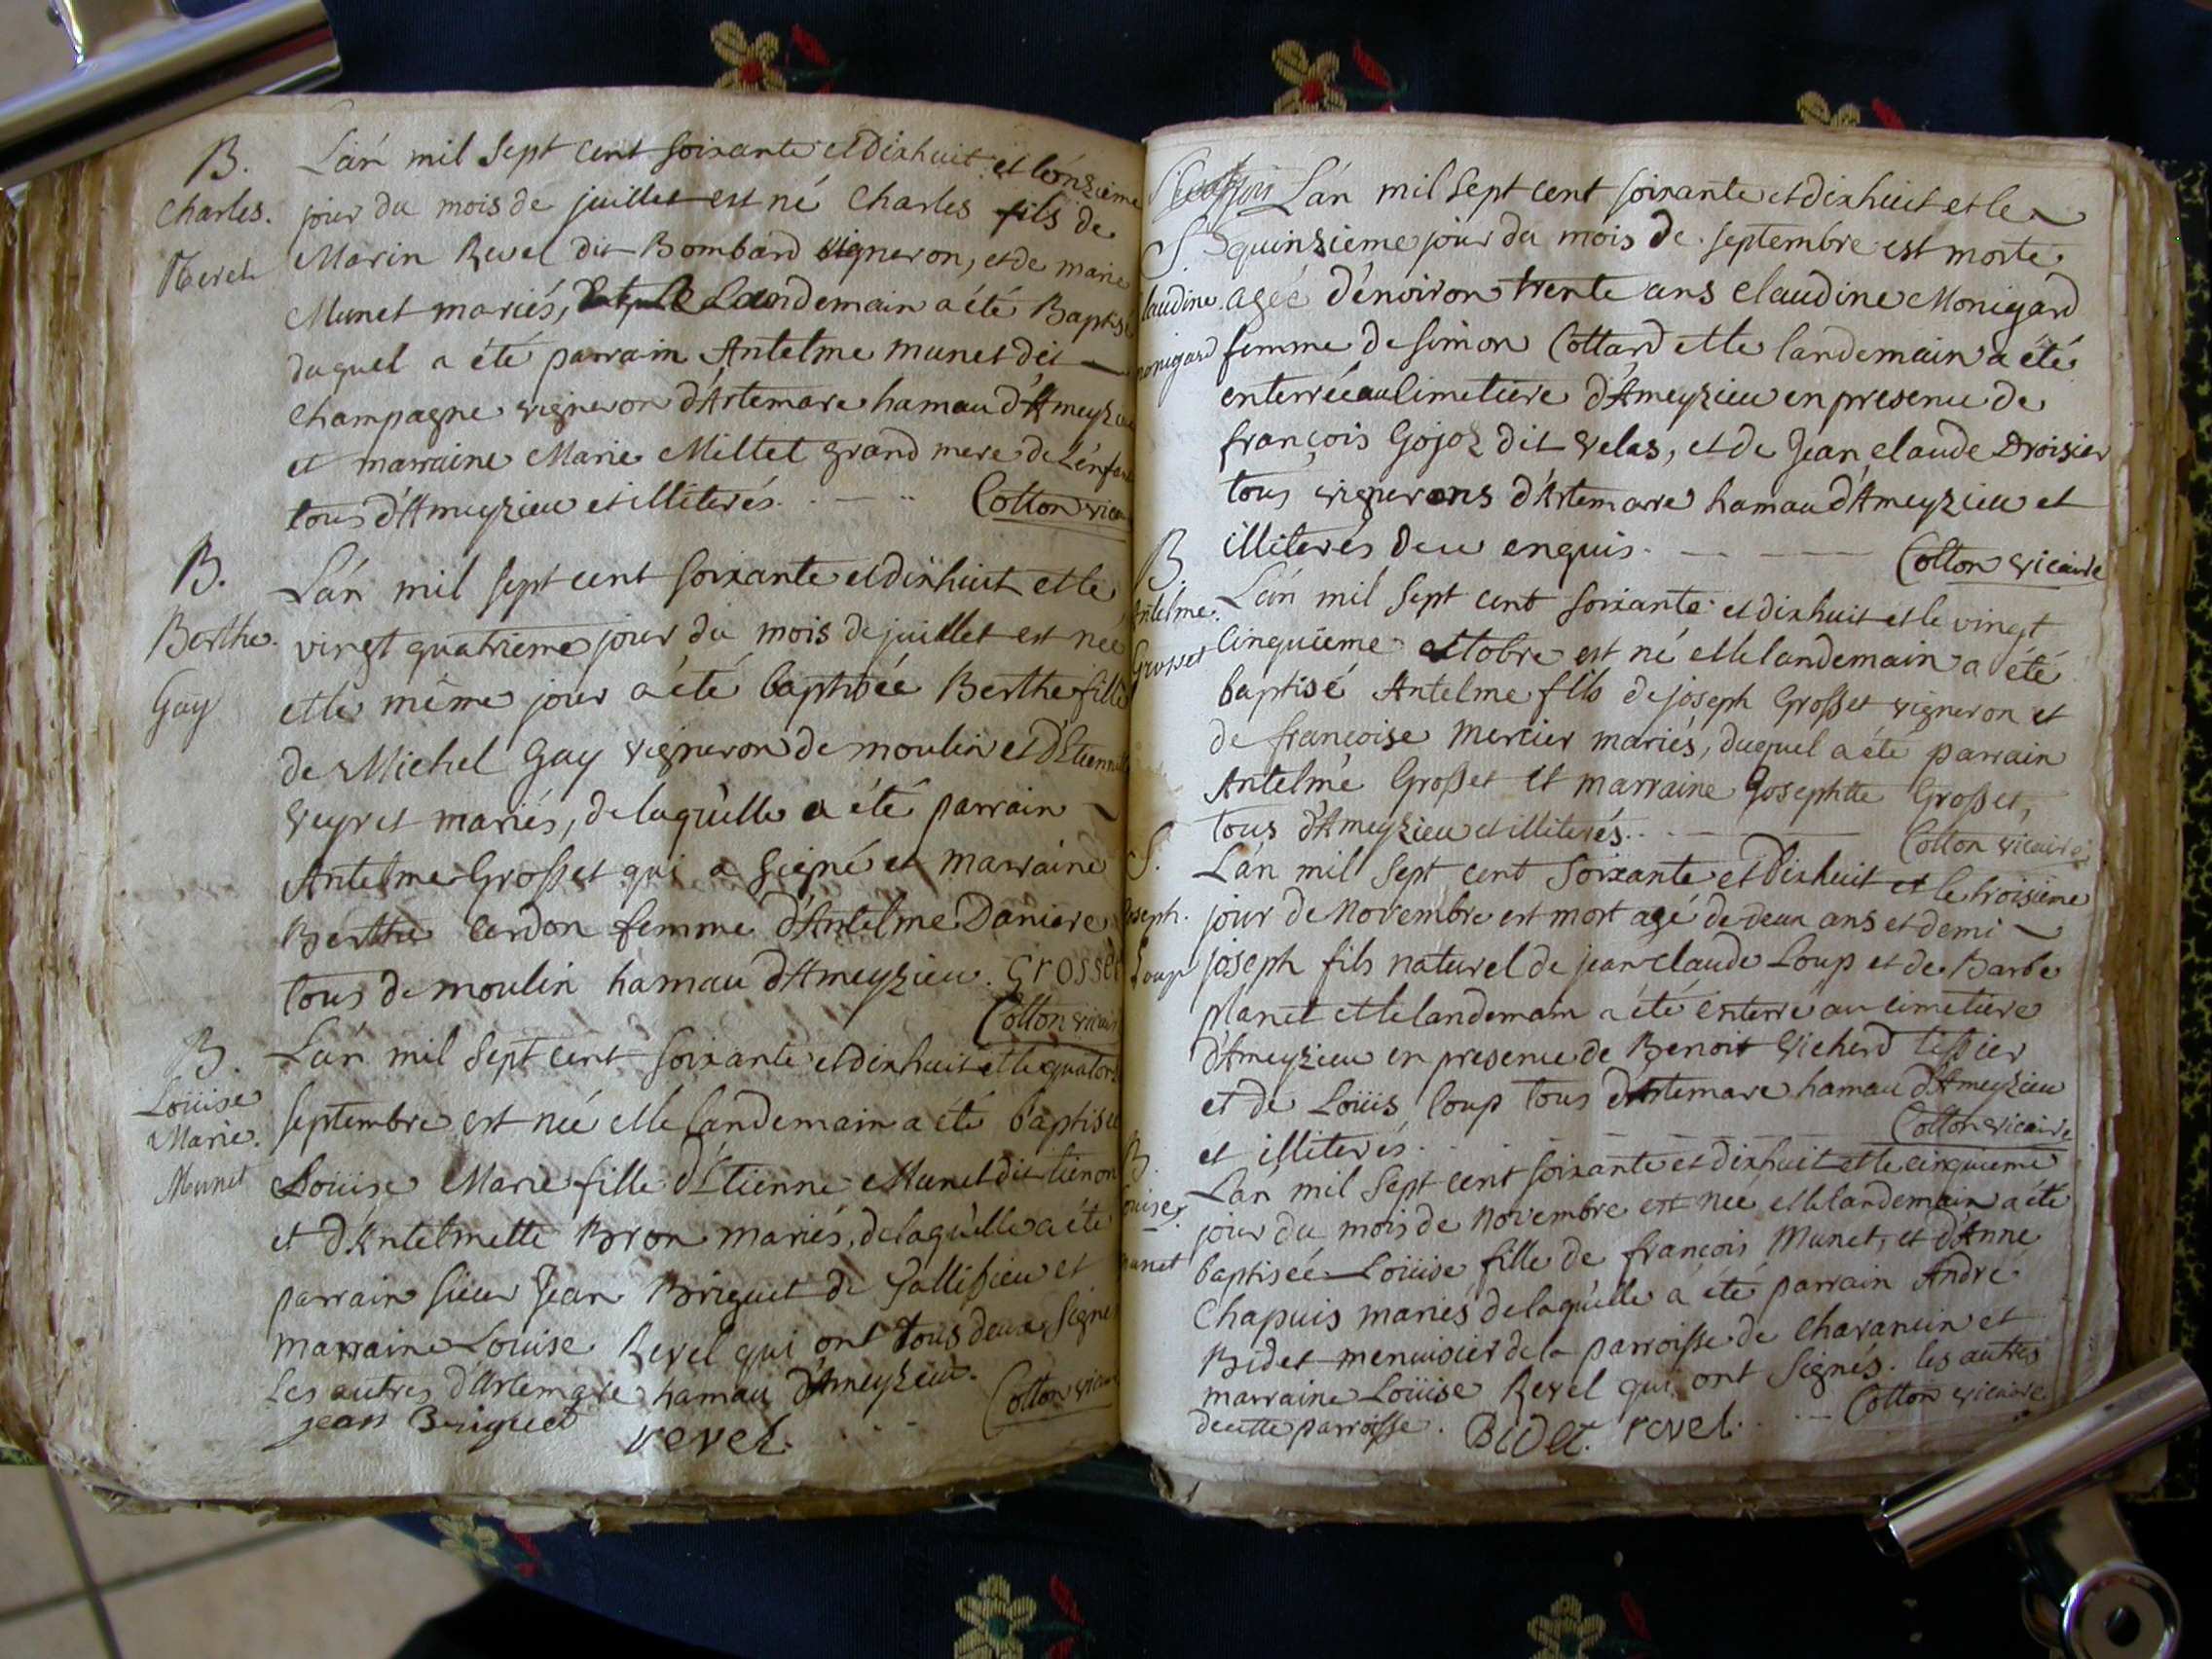 B.
Charles.
Revel
L'an mil Sept cent soixante et dixhuit et l'onzieme
jour du mois de juillet est né Charles fils de
Marin Revel dit Bombard vigneron, et de marie
Munet mariés, Landemain a été Baptisé
duquel a été parrain Antelme munet dit
Champagne vigneron d'Artemare hamau d'Ameyzieu
et marraine Marie Millet grand mere de L'enfant
tous d'Ameyzieu et illiterés. Cotton vicaire
B.
Berthe.
Gay
L'an mil sept cent soixante et dixhuit et le
vingt quatrieme jour du mois de juillet est née
et le même jour a été baptisée Berthe fille
de Michel Gay vigneron de moulin et d'Etiennette
Veyret mariés, de laquelle a été parrain
Antelme Grosset qui a signé et marraine
Berthe Cerdon femme d'Antelme Daniere
tous de moulin hamau d'Ameyzieu. Grosset
Cotton vicaire
B.
Loüise
Marie.
Munet
L'an mil Sept cent soixante et dixhuit et le quatorze
septembre est née et le landemain a été baptisée
Loüise Marie fille d'Etienne Munet dit tienon
et d'Antelmette Bron mariés, de laquelle a été
parrain sieur Jean Briguet de Tallissieu et
marraine Louise Revel qui ont tous deux Signé
les autres d'Artemare hamau d'Ameyzieu. Cotton vicaire
jean Briguet revel.
S.
Claudine
monigard
L'an mil Sept cent soixante et dixhuit et le
quinzieme jour du mois de septembre est morte
ageé d'environ trente ans Claudine Monigard
femme de simon Cottard et le landemain a été
enterrée au Cimetiere d'Ameyzieu en presence de
françois Gojoz dit velas, et de Jean claude Droisier
tous vignerons d'Artemare hamau d'Ameyzieu et
illiterés de ce enquis. Cotton vicaire
B.
Antelme.
Grosset
L'an mil Sept cent soixante et dixhuit et le vingt
Cinquieme octobre est né et le landemain a été
baptisé Antelme fils de joseph Grosset vigneron et
de françoise Mercier mariés, duquel a été parrain
Antelme Grosset et marraine Josephtte Grosset,
tous d'Ameyzieu et illiterés. Cotton vicaire
S.
Joseph.
Loup
L'an mil Sept cent Soixante et Dixhuit et le troisieme
jour de Novembre est mort agé de deux ans et demi
joseph fils naturel de jean claude Loup et de Barbe
planet et le landemain a été enterré au cimetiere
d'Ameyzieu en presence de Benoit Vicherd tissier
et de Loüis loup tous d'Artemare hamau d'Ameyzieu
et illiterés. Cotton vicaire
B.
Loüise.
munet
L'an mil Sept cent soixante et dixhuit et le cinquieme
jour du mois de Novembre est née et le landemain a été
baptisée Loüise fille de françois Munet, et d'Anne
Chapuis mariés de laquelle a été parrain André
Bidet menuisier de la parroisse de Chavancin et
marraine Loüise Revel qui ont Signés. les autres
de cette parroisse. Bidet. revel. Cotton vicaire